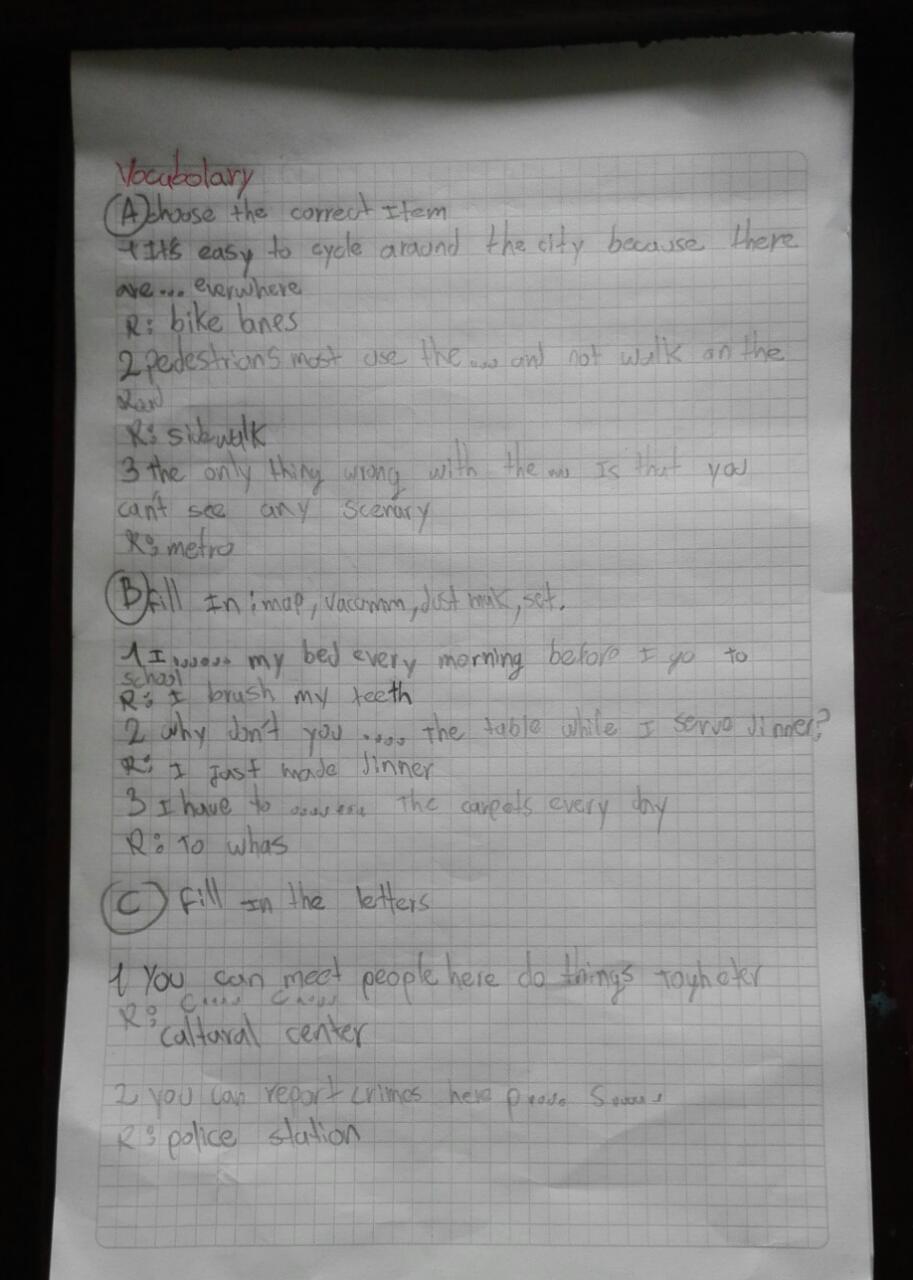 Vocabolary
(A) choose the correct Item
1 It's easy to cycle around the city because there
are... everwhere
R: bike lanes
2 pedestrians most use the ... and not walk on the
R: sidewalk
3 the only thing wrong with the ... Is that you
can't see any scenary
R: metro
(B) fill In: map, vacumm, dust, mak, set.
1 I ...... my bed every morning before I go to
school
R: I brush my teeth
2 why don't you .... the table while I serve dinner?
R: I Just made dinner
3 I have to ....... The carpets every day
R: To whas
(C) fill In the letters
1 You can meet people here do things
C.... C....
R: caltural center
2 you can report crimes here p..... S.....
R: police station